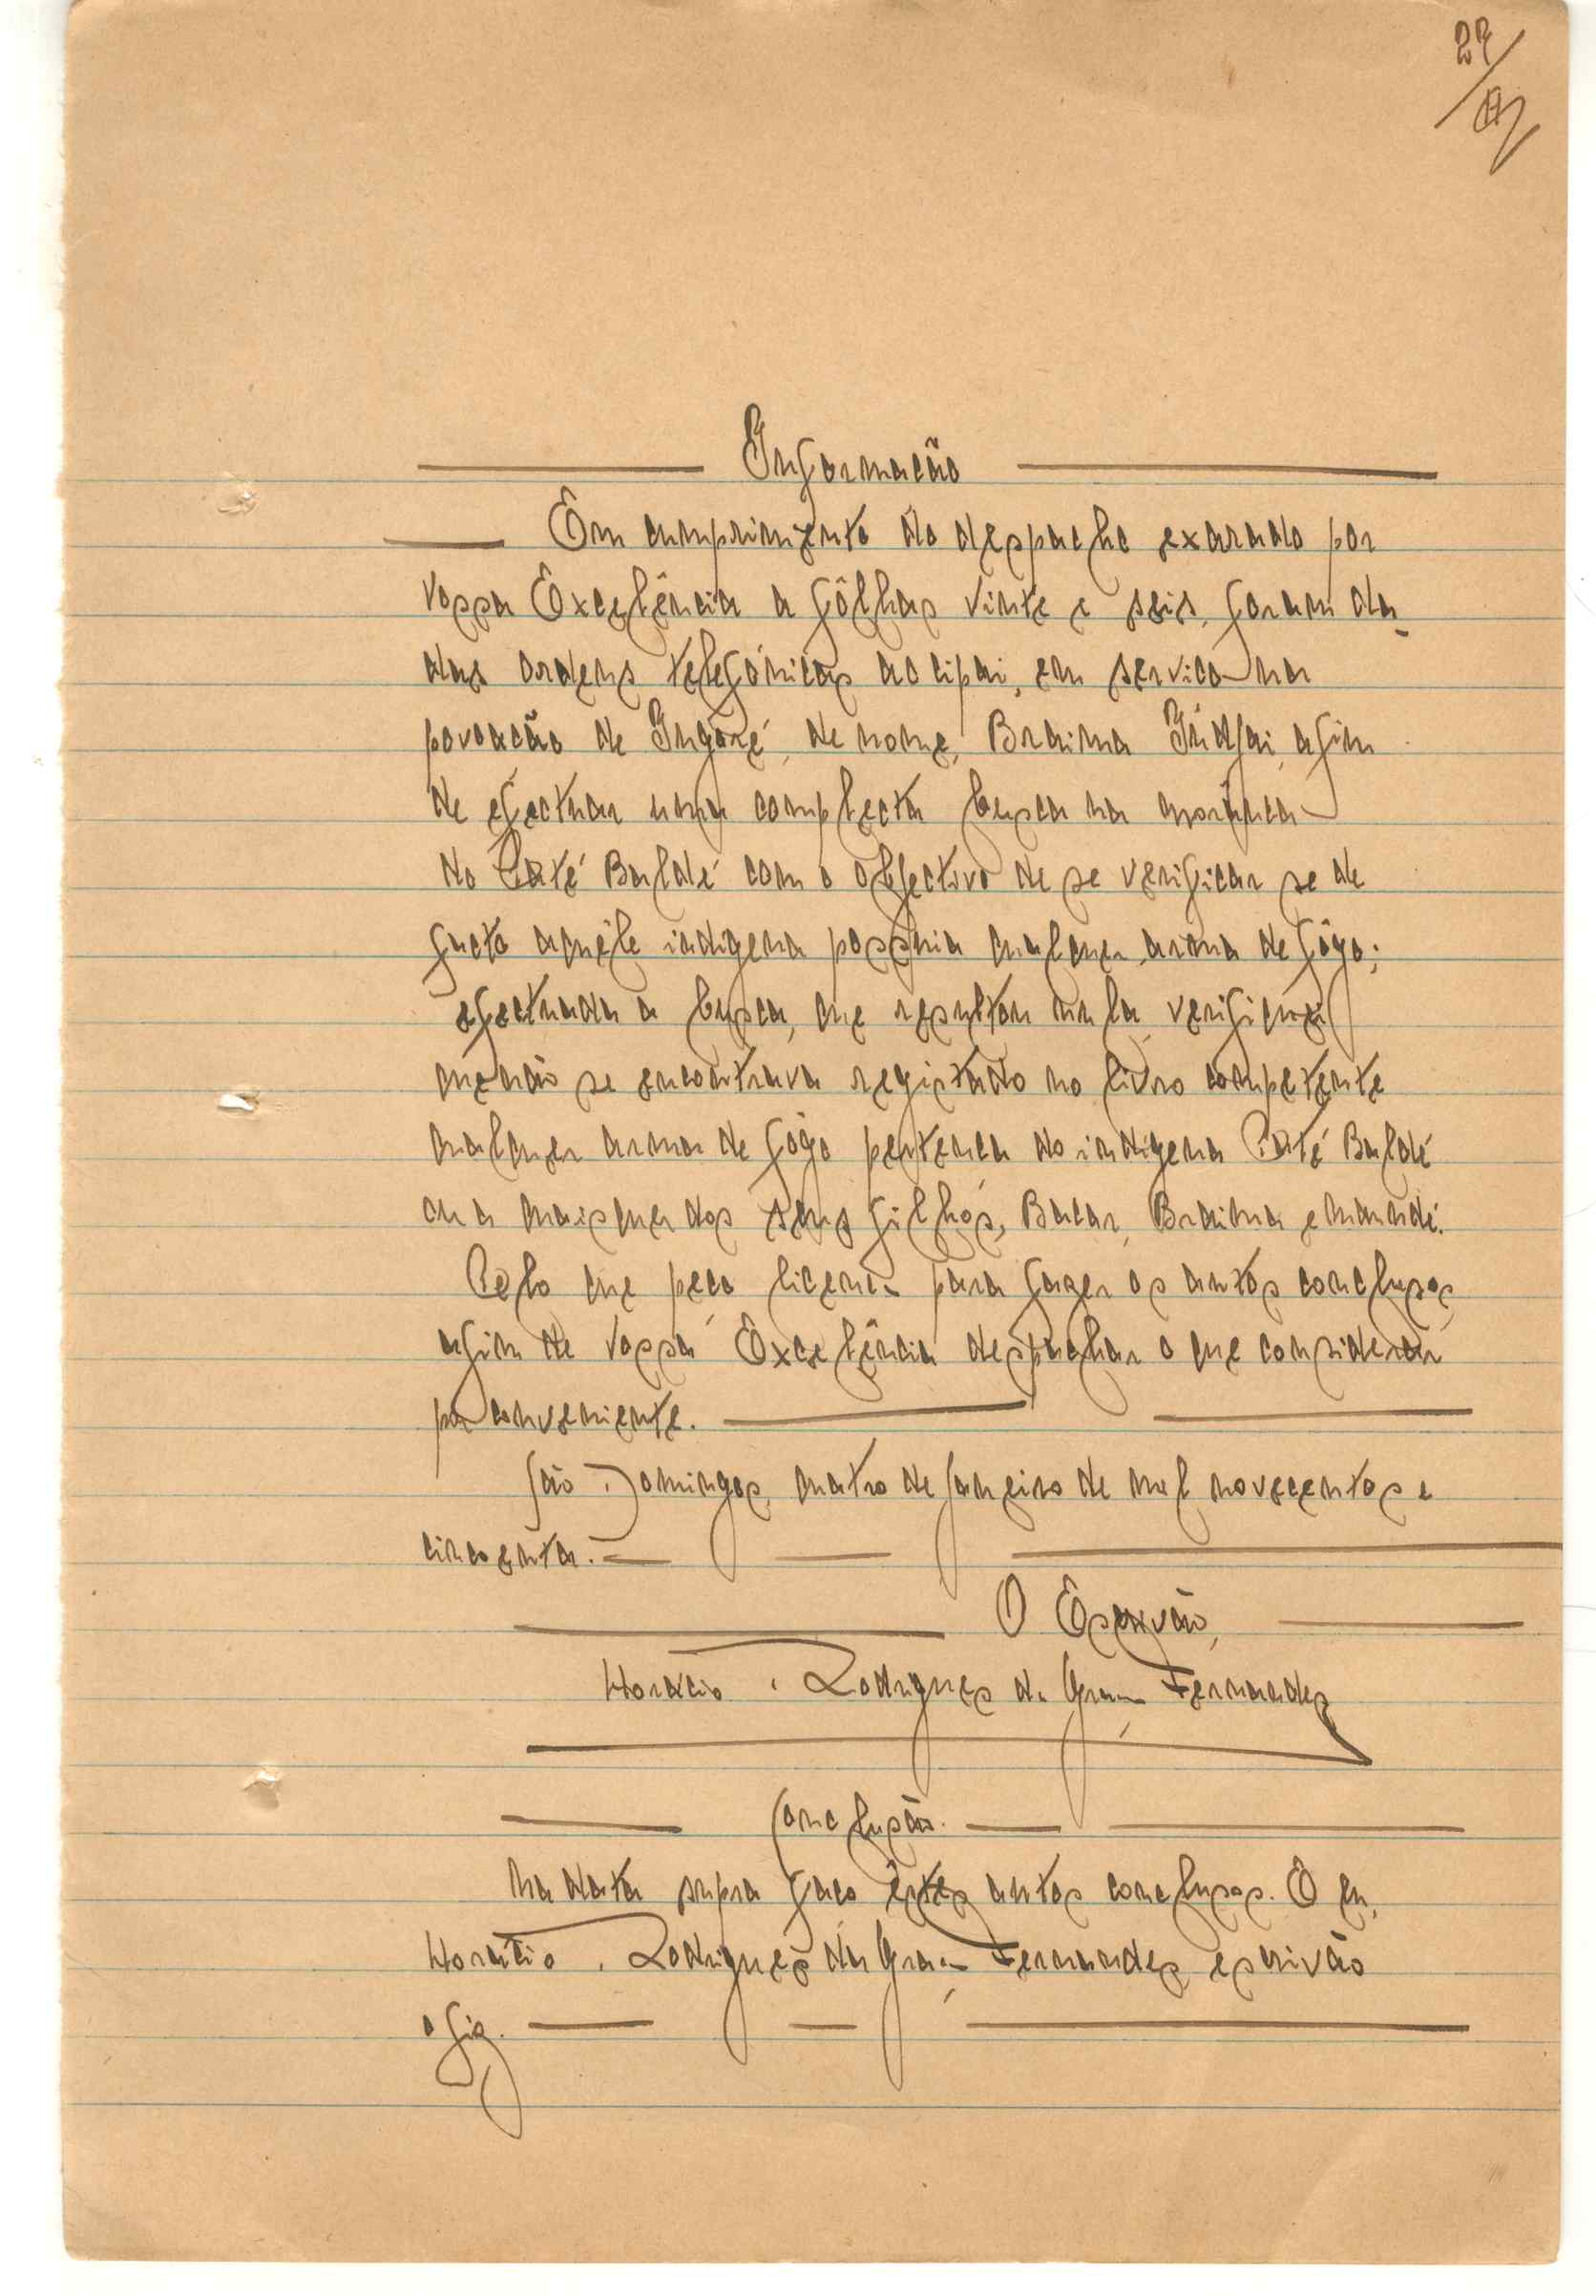 27
Informação
Em cumprimento do despacho exarado por
Vossa Excelência a fôlhas vinte e seis, foram da-
das ordens telefónicas ao cipai, em serviço na
povoação de Ingoré, de nome, Braima Indjai, afim
de efectuar uma completa busca na morança
do Paté Baldé com o objectivo de se verificar se de
facto aquêle indigena possuia qualquer arma de fôgo;
efectuada a busca, que resultou nula, verifiquei
que não se encontrava registado no livro competente
qualquer arma de fôgo pertença do indigena Paté Baldé
ou a quaisquer dos seus filhos, Bacar, Braima e Mamadé.
Pelo que peço licença para fazer os autos conclusos,
afim de Vossa Excelência despachar o que considerar
por conveniente.
São Domingos, quatro de Janeiro de mil novecentos e
cincoenta.
O Escrivão,
Horácio Rodrigues da Graça Fernandes
Conclusão.
Na data supra faço êstes autos conclusos. E eu,
Horácio Rodrigues da Graça Fernandes, escrivão
o fiz.